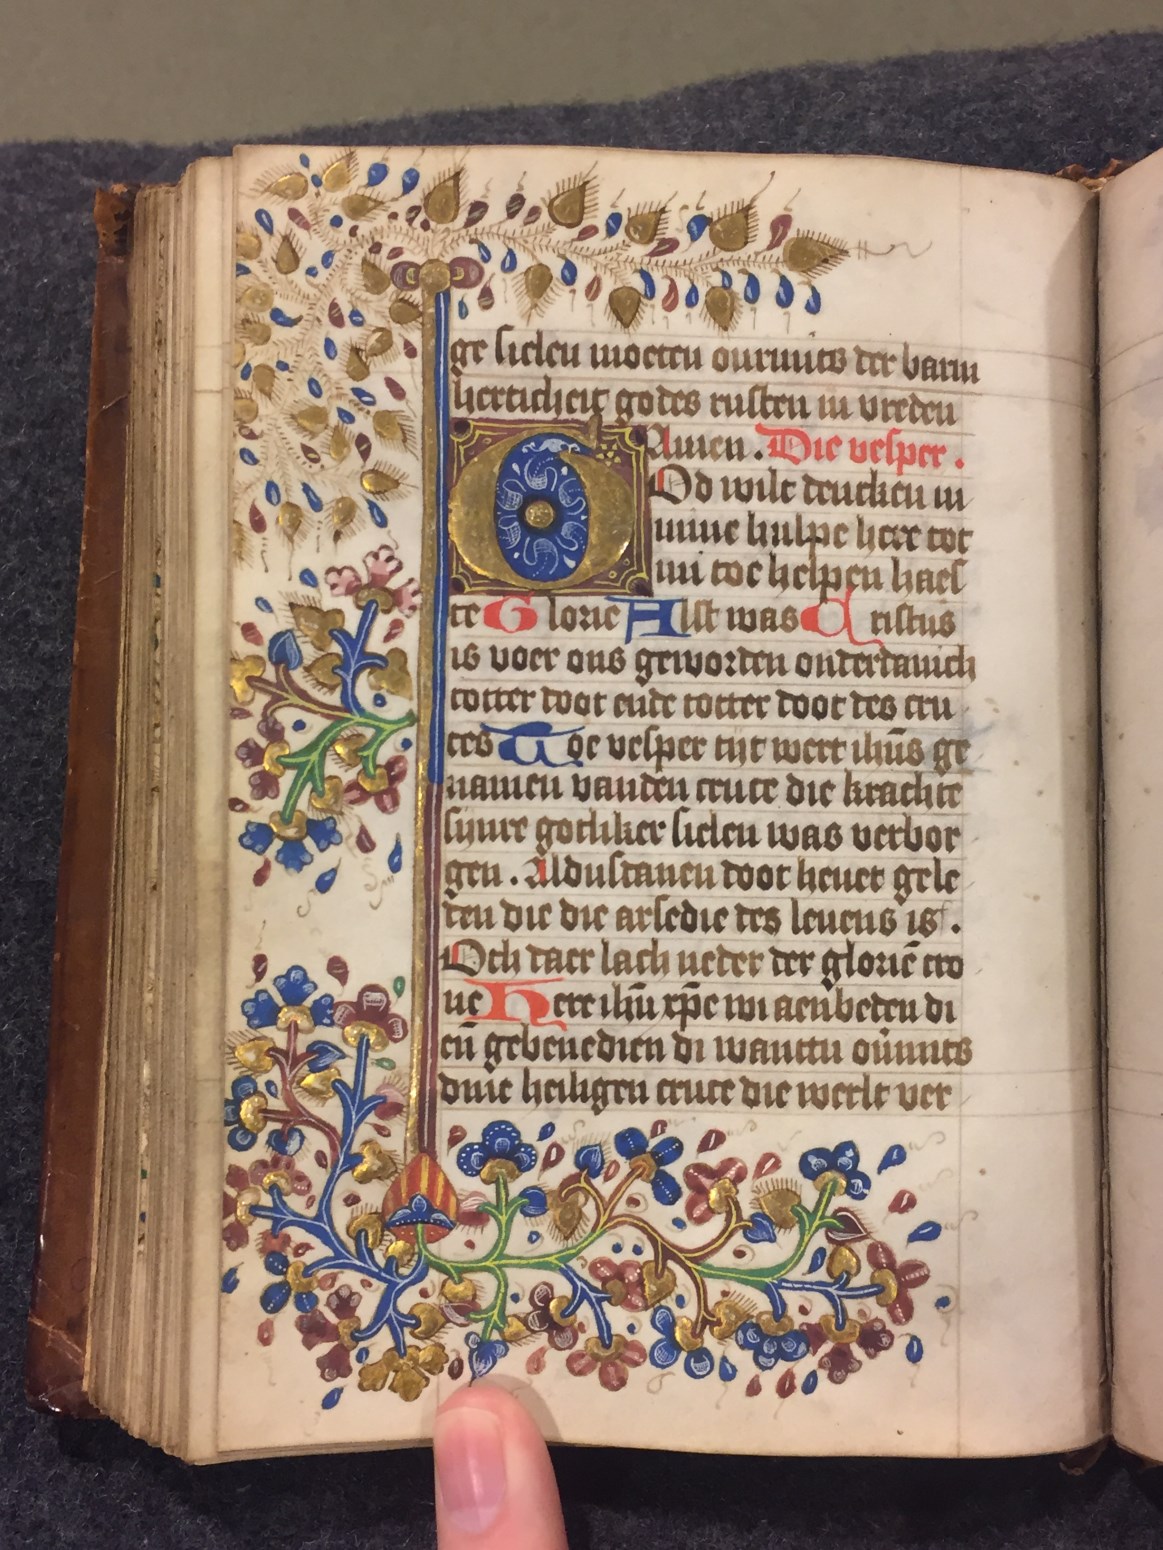 ge sielen moeten ouermits der barm
herticheit godes rusten in vreden
Amen. Die vesper.
God wilt dencken in
mine hulpe here tot
mi toe helpen haes
te Glorie Alst was Cristus
is voer ons geworden onderdanich
totter doot ende totter doot des cru
ces Toe vesper tijt wert ihūs ge
namen vanden cruce die krachte
synre godliker sielen was verbor
gen. Aldustanen doot heuet gele
den die die arsedie des leuens is.
Och daer lach neder der gloriē cro
ne Here ihū xp̄e wi aenbeden di
eñ gebenedien di wanttu oūmits
dine heiligen cruce die werlt ver